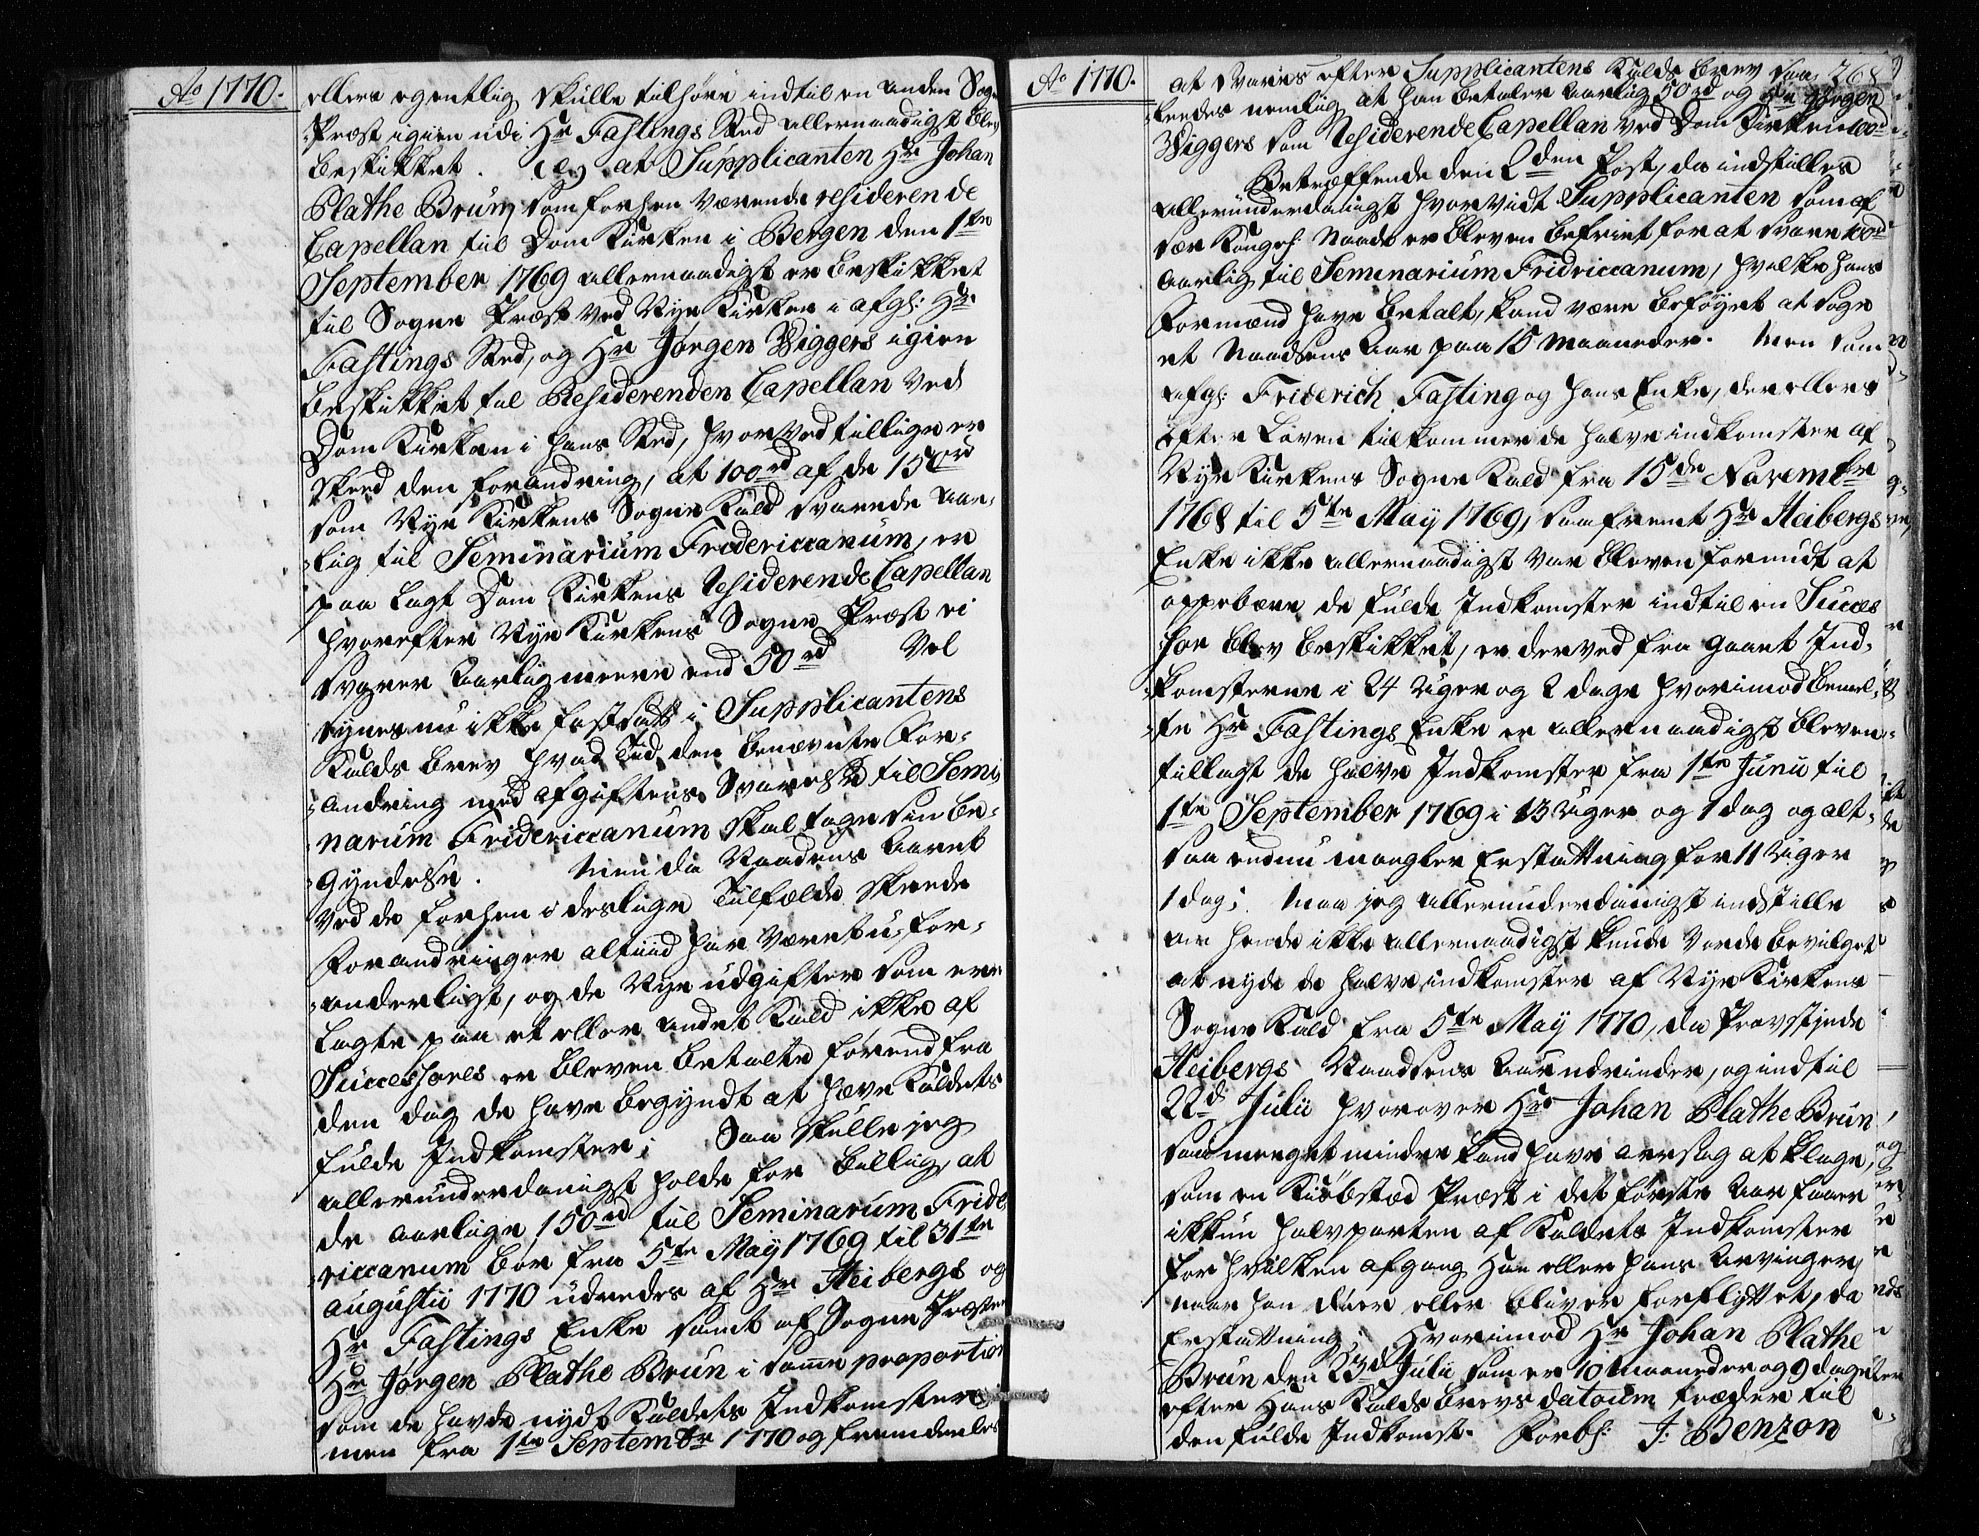 Ao 1770.
ellers egentlig skulle tilhøre indtil en anden Sogne
Præst igien udi Hr Fastings Sted allernaadigst blev
beskikket. (e) at Supplicanten Hr Johan
Plathe Brun, som forhen værende residerende
Capellan til Dom Kirken i Bergen den 1te
September 1769 allernaadigst er beskikket
til Sogne Præst ved Nye Kirken i afg: Hr
Fastings Sted, og Hr Jørgen Wiggers igien
beskikket til Residerenden Capellan ved
Dom Kirken i hans Sted, hvorved tillige er
skeed den forandring, at 100rd af de 150rd
som Nye Kirkens Sogne Kald svarede aar-
lig til Seminarium Fredericianum, er
paa lagt Dom Kirkens Residerende Capellan
hvorefter Nye Kirkens Sogne Præst ei
svarer aarlig meere end 50rd Vel
synes nu ikke fastsadt i Supplicantens
Kalds brev hvad Tid den benævnte For-
andring med afgiftens Svarelse til Semi
narium Fridericianum skal tage sin be-
gyndelse. Men da Naadens Aaret
ved de forhen i deslige Tilfælde skeede
forandringer altiid har været u-for-
anderligt, og de Nye udgifter som ere
lagte paa et eller andet Kald ikke af
Successores er bleven betalte førend fra
den dag de have begyndt at hæve Kaldets
fulde Indkomster; Saa skulle jeg
allerunderdanigst holde for billig, at
de aarlige 150rd til Seminarium Fride
ricianum bør fra 5te May 1769 til 31te
augustii 1770 udredes af Hr Heibergs og
Hr Fastings Enke samt af Sogne Præsten
Hr Jørgen Plathe Brun i samme proportion
som de havde nydt Kaldets Indkomster
men fra 1te Septembr 1770 og fremdeeles
Ao 1770.
268
at svares efter Supplicantens Kalds brev saa-
ledes nemlig at han betaler aarlig 50rd og Hr Jørgen
Wiggers som Residerende Capellan ved Dom Kirken 100rd
Betræffende den 2den Post, da indstilles
allerunderdanigst hvorvidt Supplicanten som af
sær Kongel: Naade er bleven befriet for at svare 100rd
aarlig til Seminarium Fridricianum, hvilke hans
Formænd have betalt, kand være beføyet at tage
et Naadsens Aar paa 15 Maaneder. Men som
afg: Friderich Fasting og hans Enke, der ellers
efter Loven tilkommer de halve indkomster af
Nye Kirkens Sogne Kald fra 15de Novembr
1768 til 5te May 1769, saafremt Hr Heibergs
Enke ikke allernaadigst var bleven forundt at
oppebære de fulde Indkomster indtil en Succes
sor blev beskikket, er derved fra gaaet Ind-
komsterne i 24 Uger og 2 dage hvorimod bemel-
te Hr Fastings Enke er allernaadigst bleven
tillagt de halve Indkomster fra 1te Junii til
1te September 1769 i 13 Uger og 1 dag og alt-
saa endnu mangler Erstattning for 11 Uger
1 dag; Maa jeg allerunderdanigst indstille
om hende ikke allernaadigst kunde vorde bevilget
at nyde de halve indkomster af Nye Kirkens
Sogne Kald fra 5te May 1770, da Provstinde
Heibergs Naadsens Aar endrinder, og indtil
22d Julii hvorover Hr Johan Plathe Brun
saa meeget mindre kand have aarsag at klage,
som en Kiøbstæd Præst i det første Aar faaer
ikkun halvparten af Kaldets Indkomster
for hvilken afgang Han eller hans Arvinger,
naar han døer eller bliver forflyttet, da
Erstattning; Hvorimod Hr Johan Plathe
Brun den 23d Julii som er 10 Maaneder og 9 dage
efter Hans Kalds brevs datoum træder til
den fulde Indkomst. J: Benzon